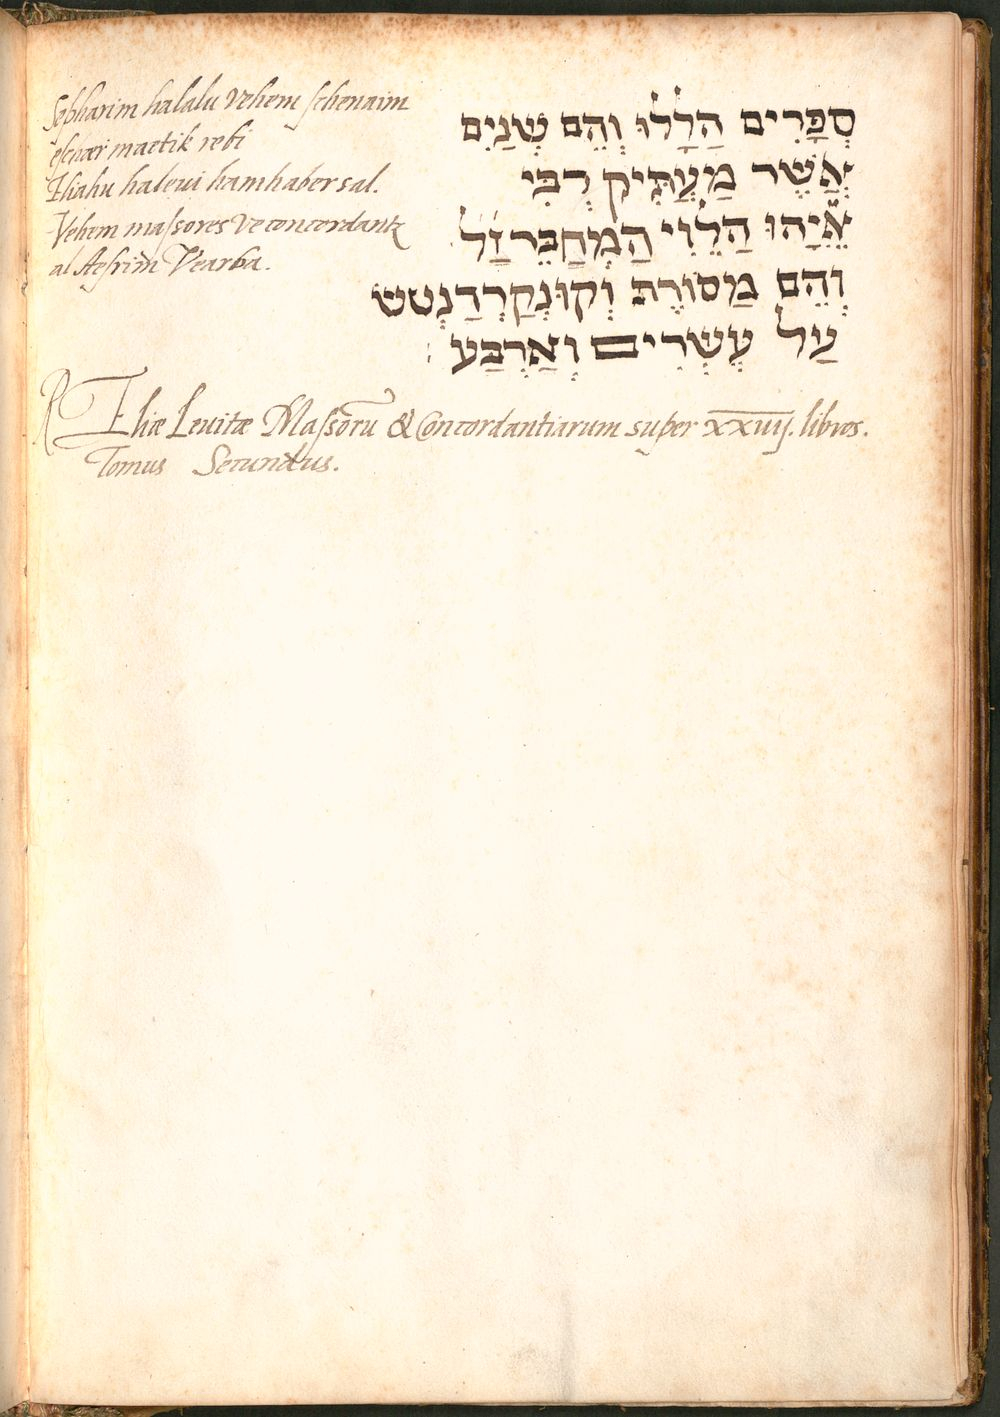 Sepharim halalu vehem schenaim
eschær maetik rebi
Eliahu halevi hamhaber sal.
Vehem massores ve concordantz
al Aesrim Vearba.
סְפָּרִים הַלָלוּ וְהֵם שְׁנַיִם
אֲשֶׁר מַעֲתִּיק רְבִּי
אֵלִיָהוּ הַלֵוִי הַמְחַבֵּר זַ״ל
וְהֵם מַסוֹרֶת וְקוּנְקַרְדַנְטש
עַל עֶשְׂרִים וְאַרְבַּע :
R Eliæ Levitæ Massorũ & Concordantiarum super xxiiij. libros.
Tomus Secundus.